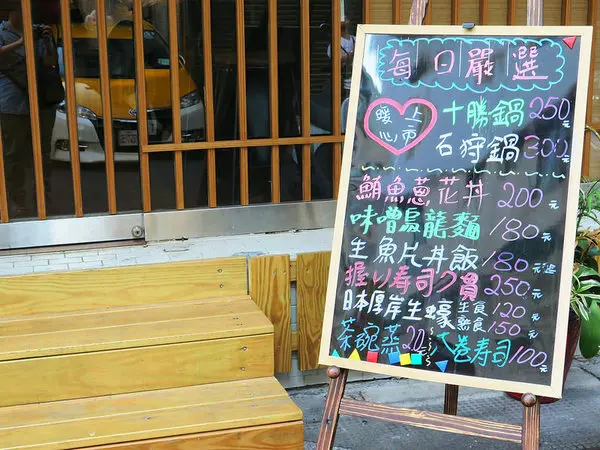 每日嚴選
暖心 上市
十勝鍋 250元
石狩鍋 300元
鮪魚蔥花丼 200元
味噌烏龍麵 180元
生魚片丼飯 180元起
握り寿司7貫 250元
日本厚岸生蠔 生食 120元
熟食 150元
茶碗蒸 20元 大卷寿司 100元